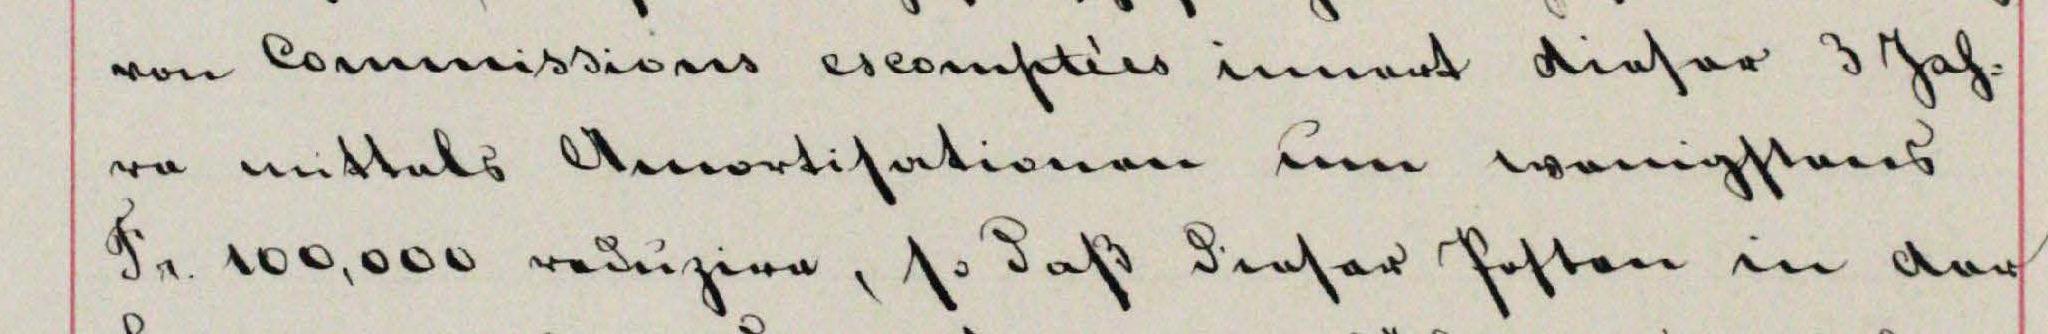 von Commissions escomptées innert dieser 3 Jah-
re mittels Amortisationen um wenigstens
Fr. 100,000 reduzire, so daß dieser Posten in der